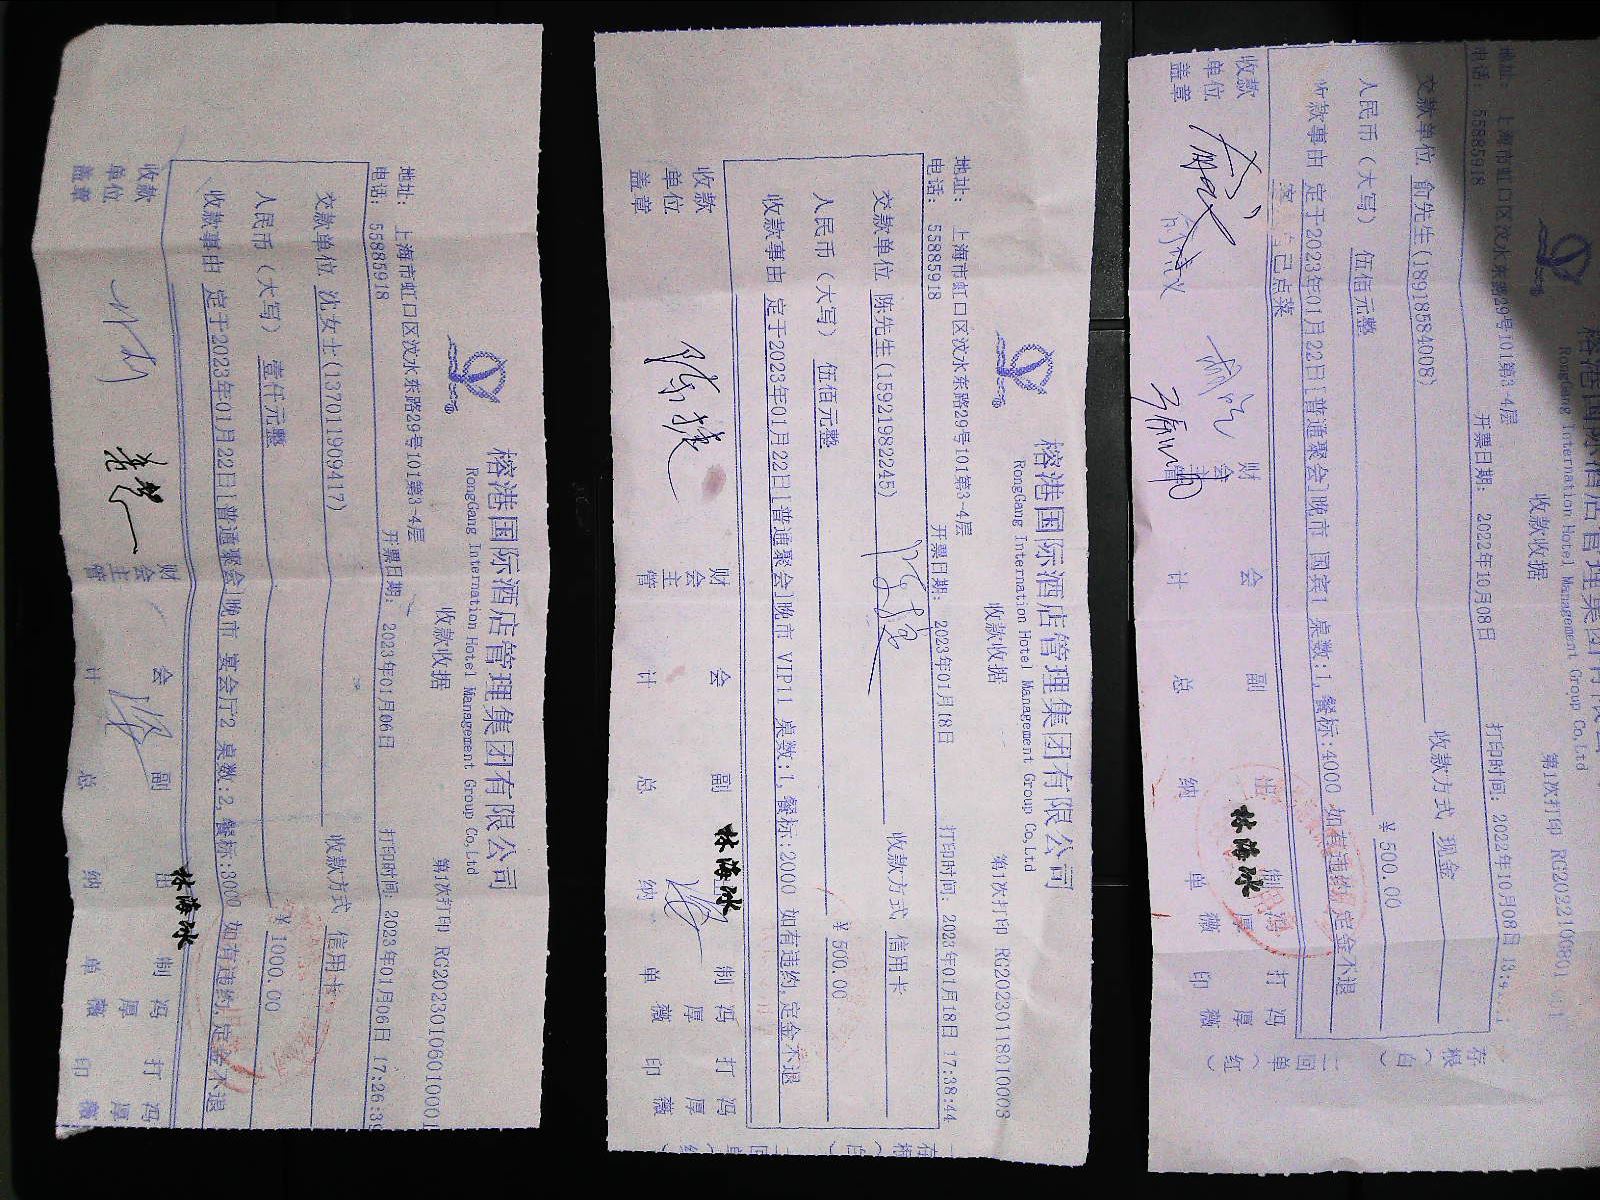 榕港国际酒店管理集团有限公司
RongGang International Hotel Management Group Co,Ltd
收款收据
第1次打印 RG20230106010001
地址: 上海市虹口区汶水东路29号101第3-4层
电话: 55885918
开票日期: 2023年01月06日
打印时间: 2023年01月06日 17:26:39
交款单位 沈女士(137011909417)
收款方式 信用卡
人民币(大写) 壹仟元整
¥ 1000.00
收款事由 定于2023年01月22日[普通聚会]晚市 宴会厅2 桌数:2,餐标:3000 如有违约,定金不退
收款单位盖章
财会主管
会计
副总
出纳
制单 冯厚薇
打印 冯厚薇
林海冰
榕港国际酒店管理集团有限公司
RongGang International Hotel Management Group Co,Ltd
收款收据
第1次打印 RG20230118010003
地址: 上海市虹口区汶水东路29号101第3-4层
电话: 55885918
开票日期: 2023年01月18日
打印时间: 2023年01月18日 17:38:44
交款单位 陈先生(15921982245)
收款方式 信用卡
人民币(大写) 伍佰元整
¥ 500.00
收款事由 定于2023年01月22日[普通聚会]晚市 VIP11 桌数:1,餐标:2000 如有违约,定金不退
收款单位盖章
陈捷
财会主管
会计
副总
出纳
制单 冯厚薇
打印 冯厚薇
林海冰
RongGang International Hotel Management Group Co,Ltd
收款收据
第1次打印
地址: 上海市虹口区汶水东路29号101第3-4层
电话: 55885918
开票日期: 2022年10月08日
打印时间: 2022年10月08日
交款单位 俞先生(18918584008)
收款方式 现金
人民币(大写) 伍佰元整
¥ 500.00
收款事由 定于2023年01月22日[普通聚会]晚市 国宾1 桌数:1,餐标:4000 如有违约,定金不退
自己点菜
收款单位盖章
财会主管
会计
副总
出纳
制单 冯厚薇
打印 冯厚薇
林海冰
一存根(白)
二回单(红)